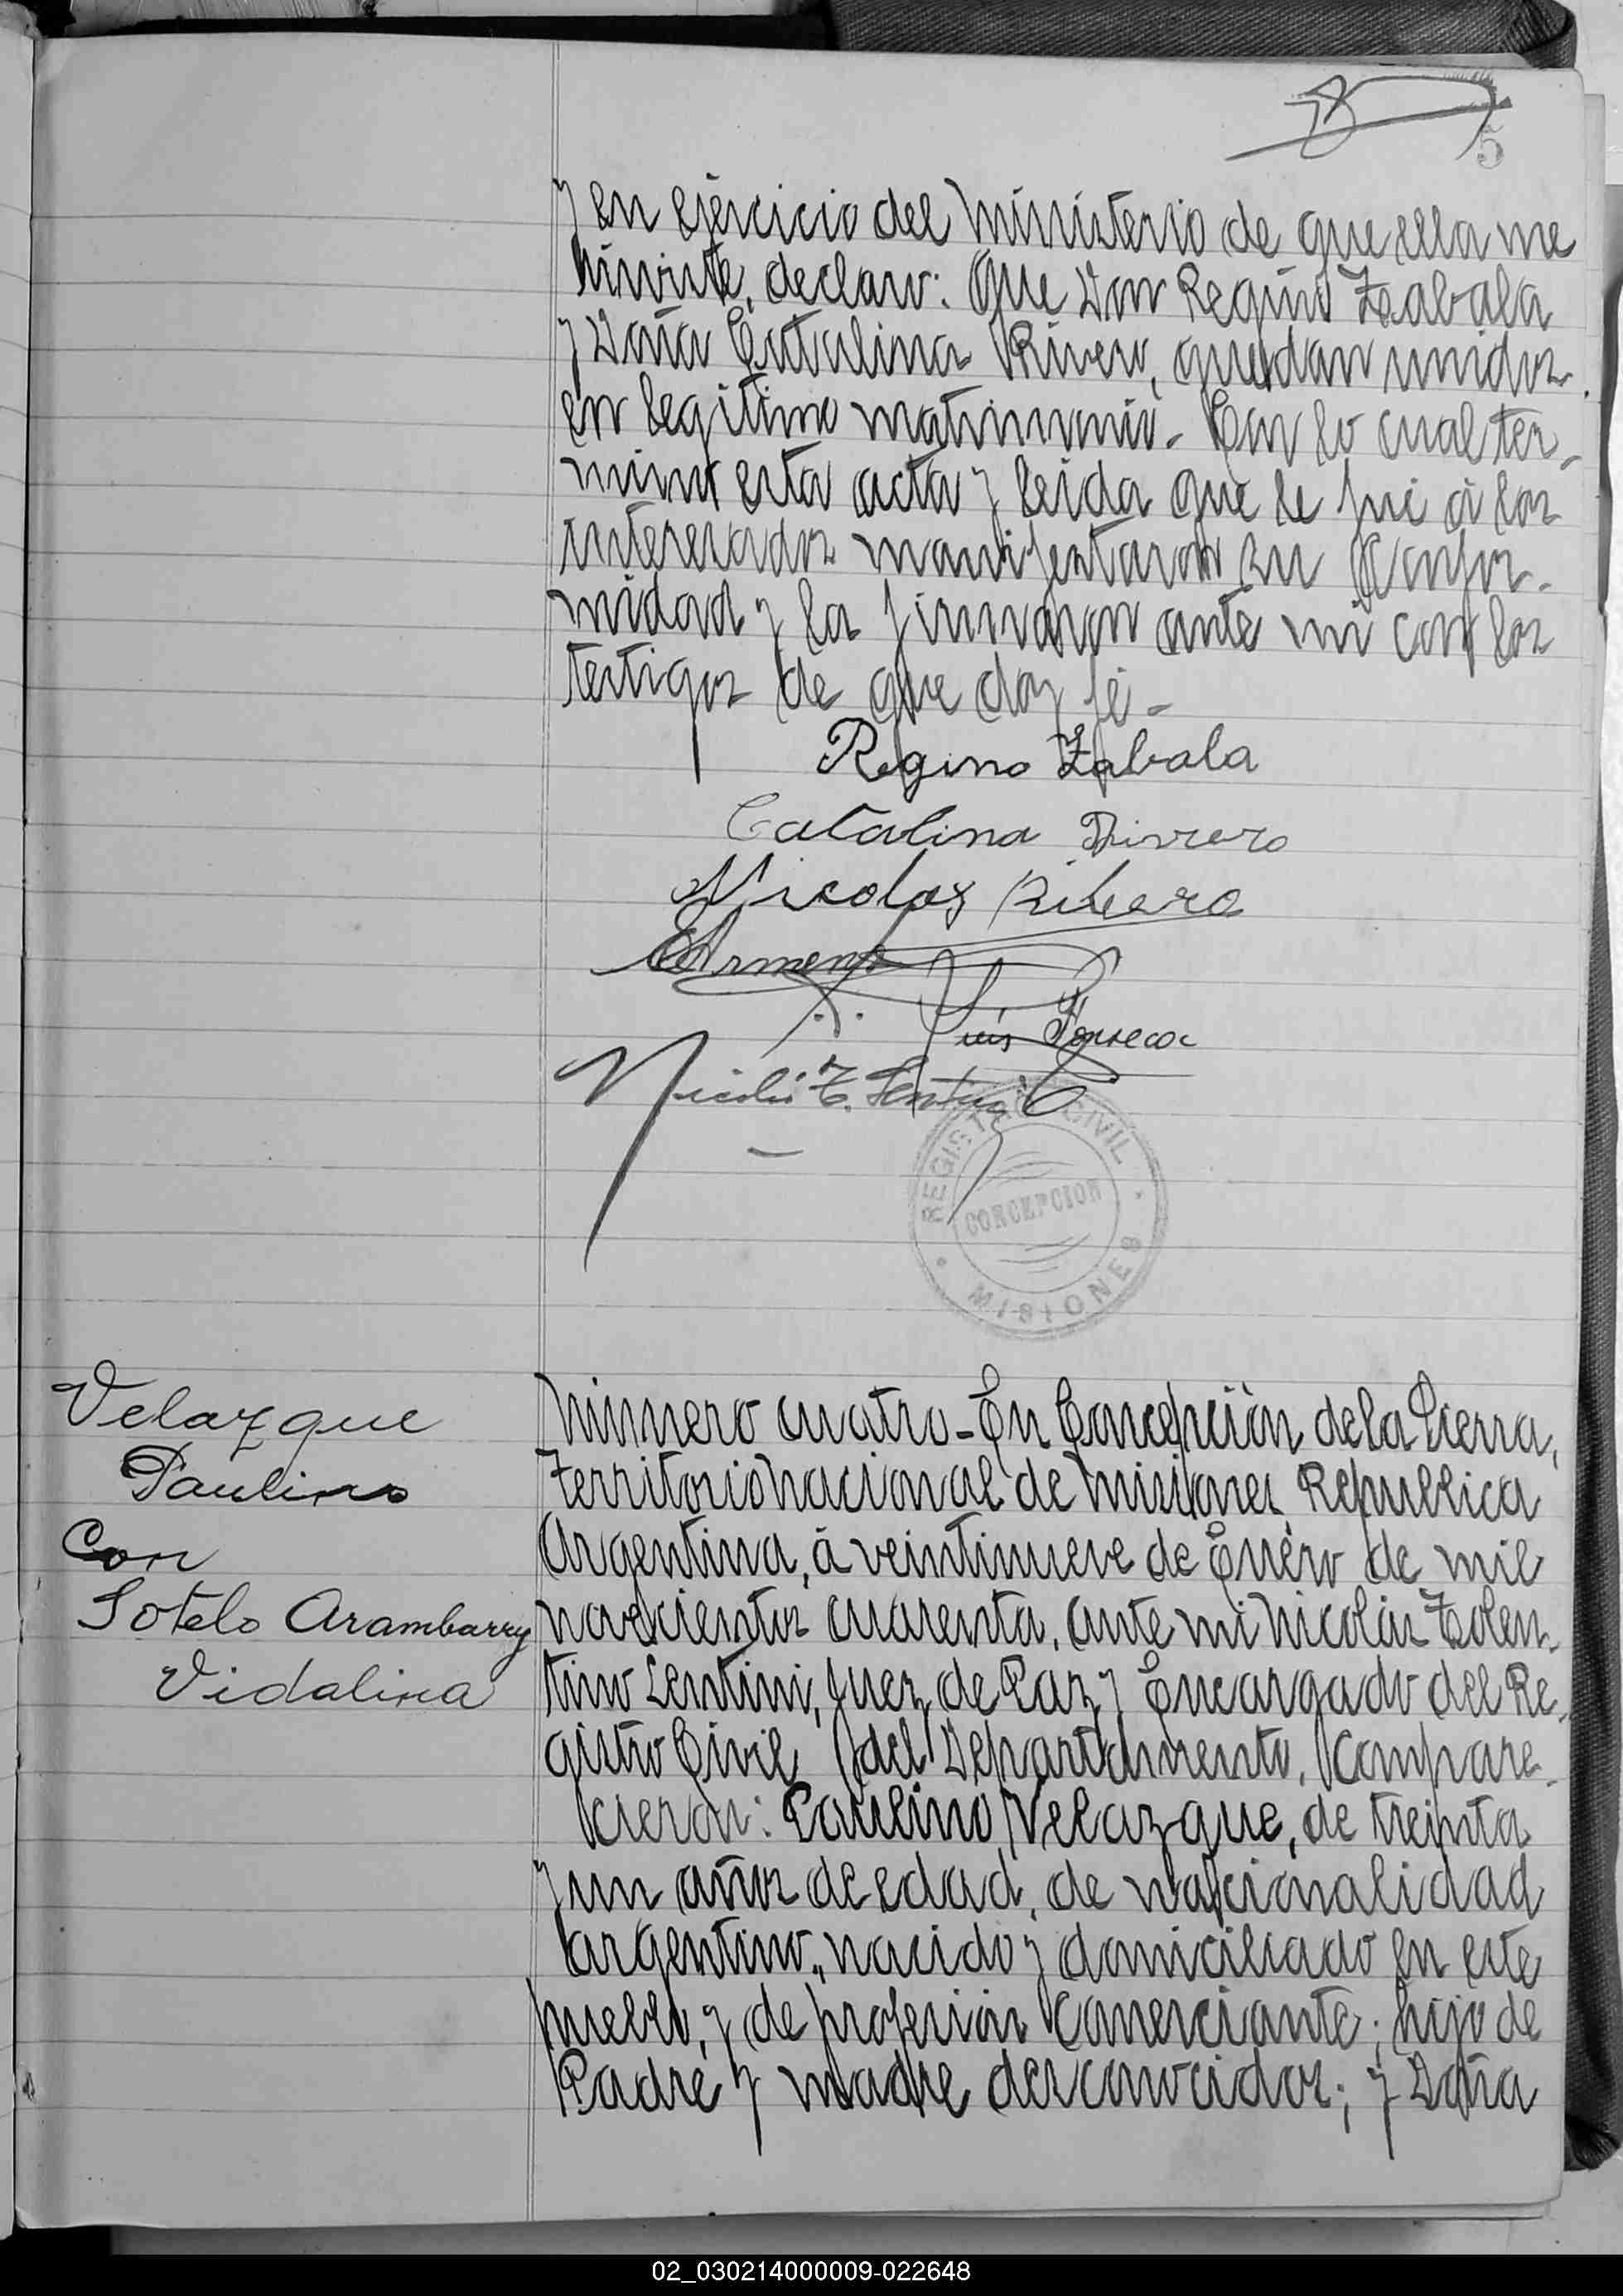 5
y en ejercicio del ministerio de que ella me
inviste, declaro: Que Don Regino Zabala
y Doña Catalina Rivero, quedan unidos
en legitimo matrimonio. Con lo cual ter-
minó esta acta y leida que le fué á los
interesados manifestaron su confor-
midad y la firmaron ante mi con los
testigos de que doy fé-
Regino Zabala
Catalina Rivero
Nicolas Ribero
Luis Fonseca
REGISTRO CIVIL
CONCEPCION
MISIONES
Velazque
Paulino
Con
Sotelo Arambarry
Vidalina
Número cuatro - En Concepción de la Sierra,
Territorio nacional de Misiones Republica
Argentina, á veintinueve de Enero de mil
novecientos cuarenta, ante mi Nicolás Tolen-
tino Lentini, Juez de Paz y Encargado del Re-
gistro Civil del Departamento, Compare-
cieron: Paulino Velazque, de treinta
y un años de edad, de nacionalidad
argentino, nacido y domiciliado en este
pueblo, y de profesión comerciante; hijo de
Padre y madre desconocidos; y Doña
02_030214000009-022648